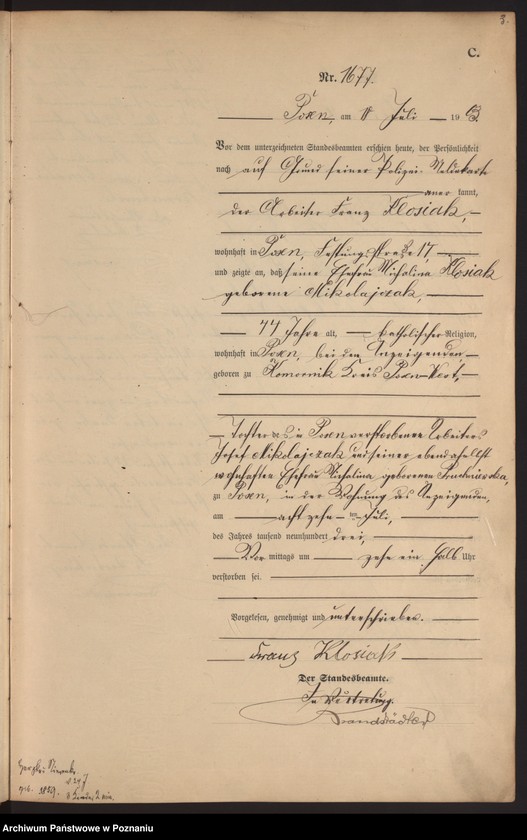 3.
C.
Nr. 1677.
Posen, am 18 Juli 1903.
Vor dem unterzeichneten Standesbeamten erschien heute, der Persönlichkeit
nach auf Grund seiner Polizei-Meldekarte
aner kannt,
der Arbeiter Franz Klosiak,
wohnhaft in Posen, Festungsstraße 17,
und zeigte an, daß seine Ehefrau Michalina Klosiak
geborene Mikolajczak,
44 Jahre alt, katholischer Religion,
wohnhaft in Posen, bei dem Anzeigenden
geboren zu Komornik Kreis Posen-West,
Tochter des in Posen verstorbenen Arbeiters
Josef Mikolajczak und seiner ebendaselbst
wohnhaften Ehefrau Michalina geborenen
zu Posen, in der Wohnung des Anzeigenden,
am achtzehnten Juli,
des Jahres tausend neunhundert drei,
Vor mittags um zehn ein halb Uhr
verstorben sei.
Vorgelesen, genehmigt und unterschrieben.
Franz Klosiak
Der Standesbeamte.
In Vertretung.
Brandstädter
geb. 1859.
Archiwum Państwowe w Poznaniu